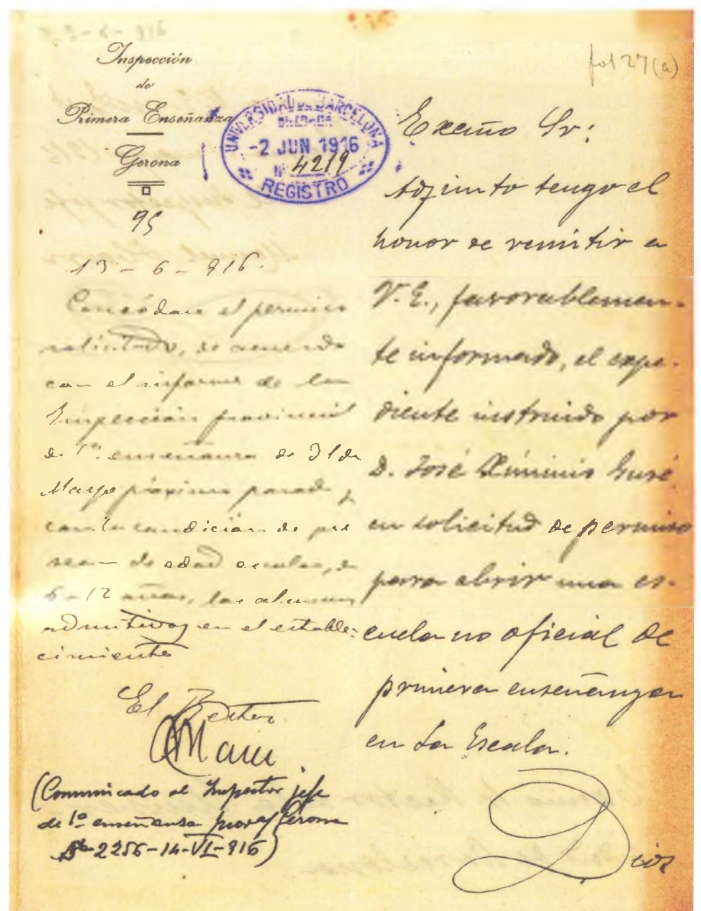 fol 27(a)
Inspección
de
Primera Enseñanza
Gerona
95
UNIVERSIDAD DE BARCELONA
ENTRADA
-2 JUN 1916
Nº 4219
REGISTRO
13-6-916.
Concédase el permiso
solicitado, de acuerdo
con el informe de la
Inspección provincial
de 1ª enseñanza de 31 de
Mayo próximo pasado y
con la condición de que
sean de edad escolar, de
6-12 años, los alumnos
admitidos en el estable-
cimiento
El Rector
(Comunicado al Inspector jefe
de 1ª enseñansa prov. Gerona
2256-14-VI-916)
Excmo Sr:
Adjunto tengo el
honor de remitir a
V.E., favorablemen-
te informado, el expe-
diente instruido por
D. José Ximinis Gusé
en solicitud de permiso
para abrir una es-
cuela no oficial de
primera enseñanza
en La Escala.
Dios